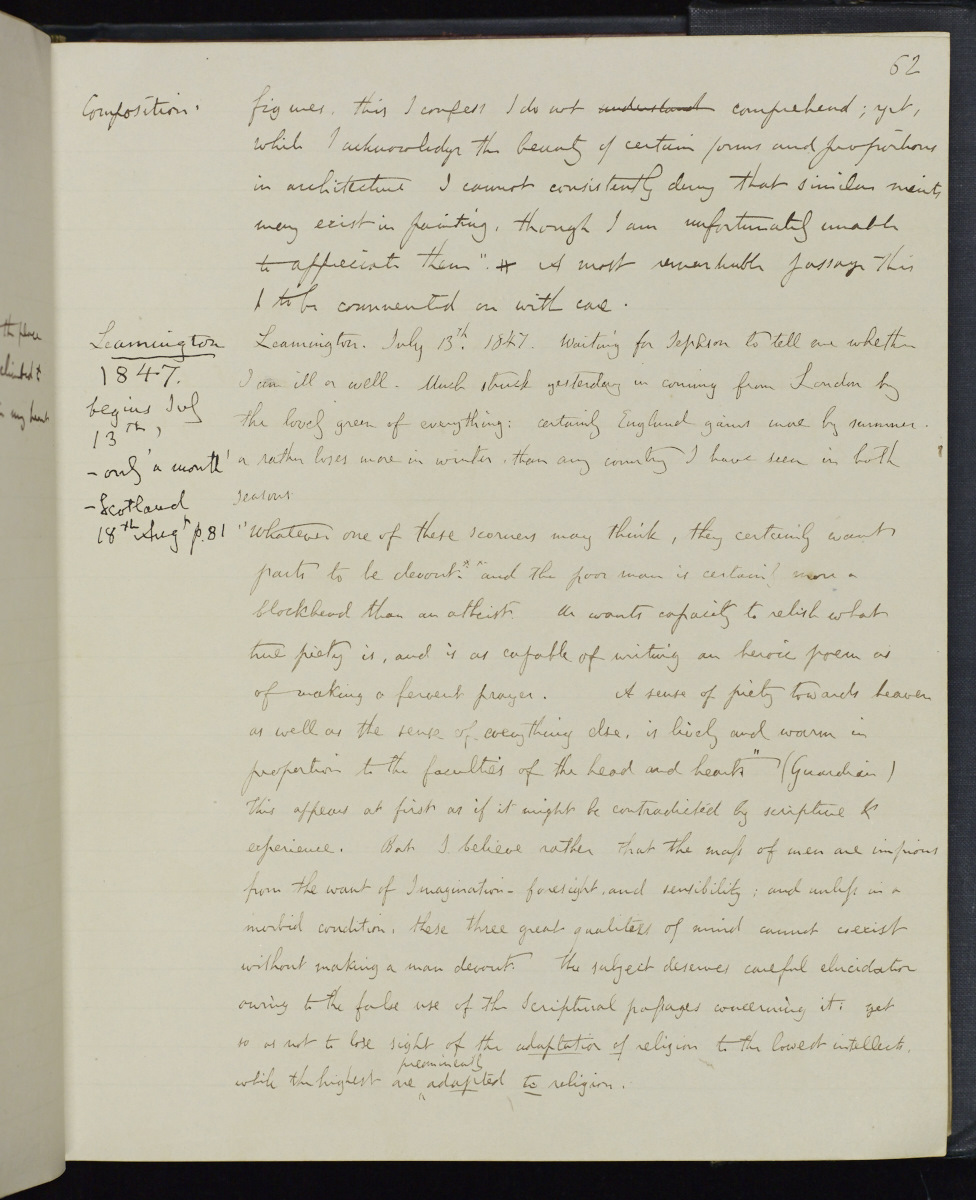 62
Composition.
figures. this I confess I do not understand comprehend; yet,
while I acknowledge the beauty of certain forms and proportions
in architecture I cannot consistently deny that similar merits
may exist in painting, though I am unfortunately unable
to appreciate them". # A most remarkable passage this
to be commented on with care.
Leamington
1847.
begins July
13th,
- only 'a month'
- Scotland
18th Augt p. 81
Leamington. July 13th. 1847. Waiting for Jephson to tell me whether
I am ill or well. Much struck yesterday in coming from London by
the lovely green of everything: certainly England gains more by summer.
or rather loses more in winter, than any country I have seen in both
seasons
"Whatever one of these scorners may think, they certainly want
parts to be devout." "and the poor man is certainly more a
blockhead than an atheist. He wants capacity to relish what
true piety is, and is as capable of writing an heroic poem as
of making a fervent prayer. A sense of piety towards heaven
as well as the sense of everything else, is lively and warm in
proportion to the faculties of the head and heart" (Guardian)
This appears at first as if it might be contradicted by scripture &
experience. But I believe rather that the mass of men are impious
from the want of Imagination - foresight, and sensibility; and unless in a
morbid condition, these three great qualities of mind cannot coexist
without making a man devout. The subject deserves careful elucidation
owing to the false use of the Scriptural passages concerning it: yet
so as not to lose sight of the adaptation of religion to the lowest intellects,
preeminently
while the highest are adapted to religion.